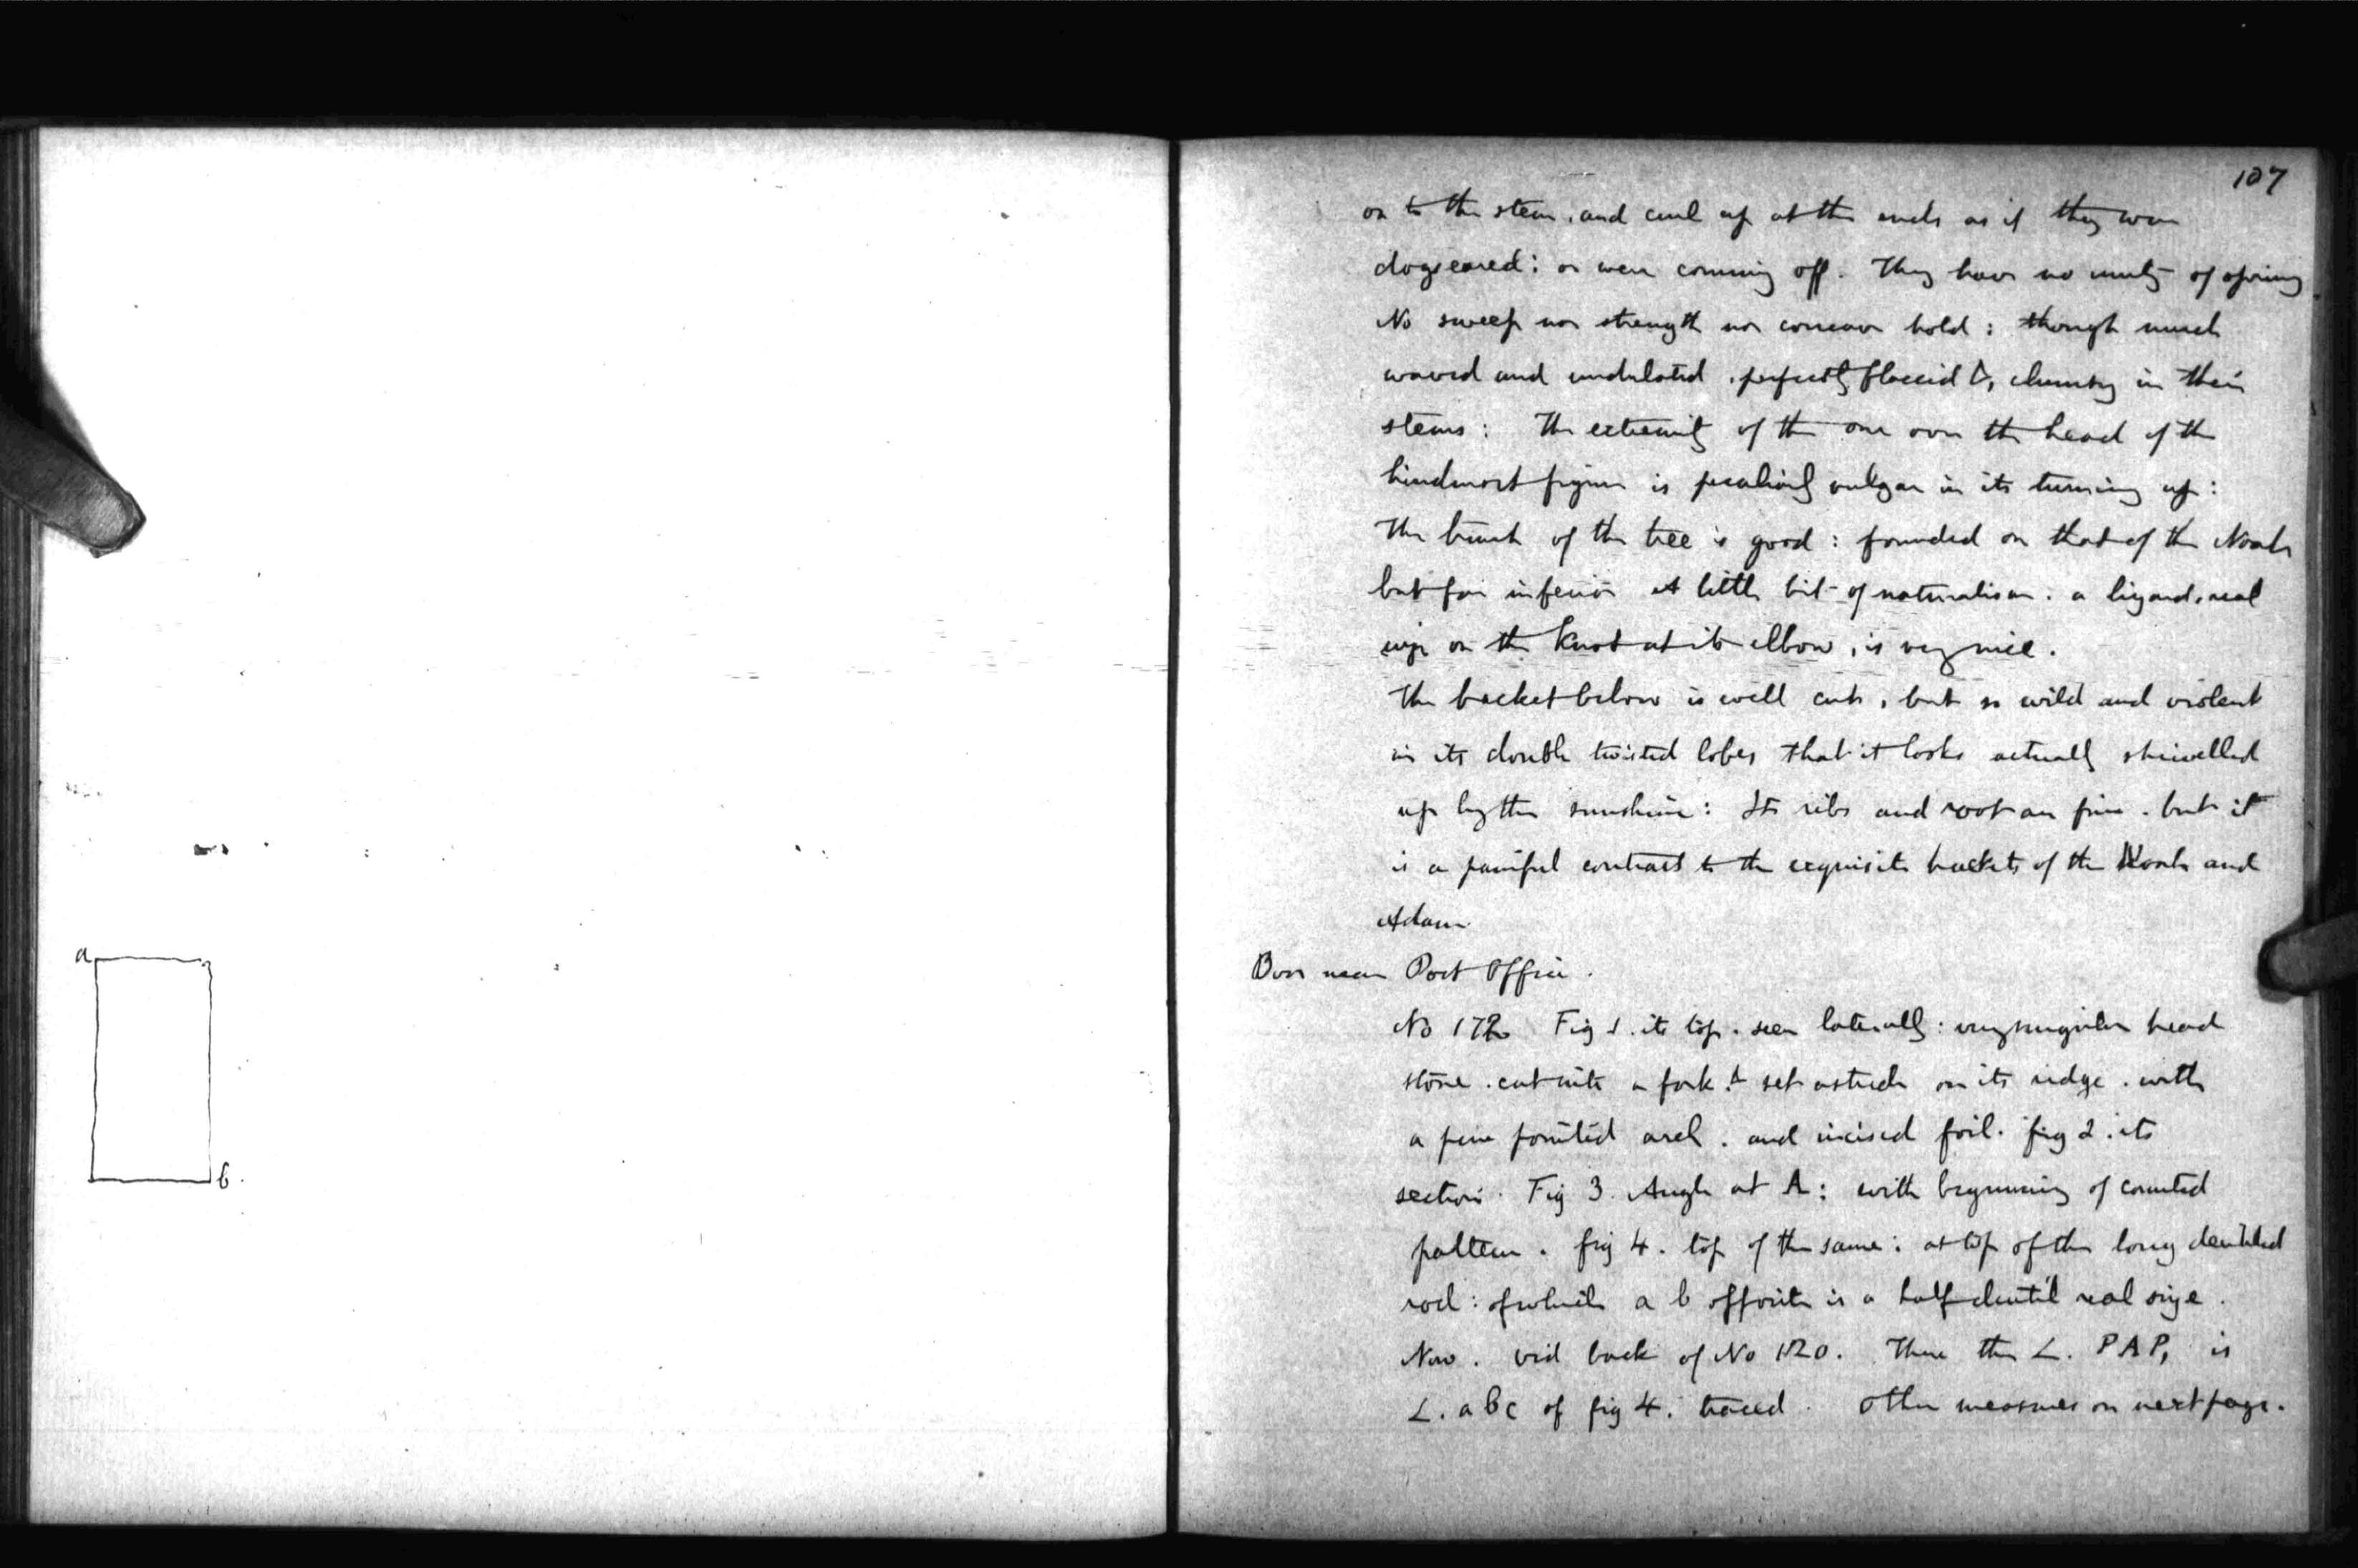 a
b.
107
on to the stem, and curl up at the ends as if they were
dogseared: or were coming off. They have no unity of spring
No sweep nor strength nor concave hold: though much
waved and undulated. perfectly flaccid &, clumsy in their
stems: The extremity of the one over the head of the
hindmost figure is peculiarly vulgar in its turning up:
The trunk of the tree is good: founded on that of the Noah
but far inferior A little bit of naturalism. a lizard, real
size on the knot at its elbow, is very nice.
The bracket below is well cut, but so wild and violent
in its double twisted lobes that it looks actually shrivelled
up by the sunshine: Its ribs and root are fine. but it
is a painful contrast to the exquisite brackets of the Noah and
Adam.
Door near Post Office.
No 172 Fig 1. its top. seen laterally: very singular head
stone. cut into a fork & set astride on its ridge. with
a fine pointed arch. and incised foil. fig 2. its
section. Fig 3. Angle at A: with beginning of
pattern. fig 4. top of the same: at top of the long dentilled
rod: of which a b opposite is a half dentil real size.
Now. vid back of No 120. There the L. PAP, is
L. abc of fig 4. traced. Other measures on next page.